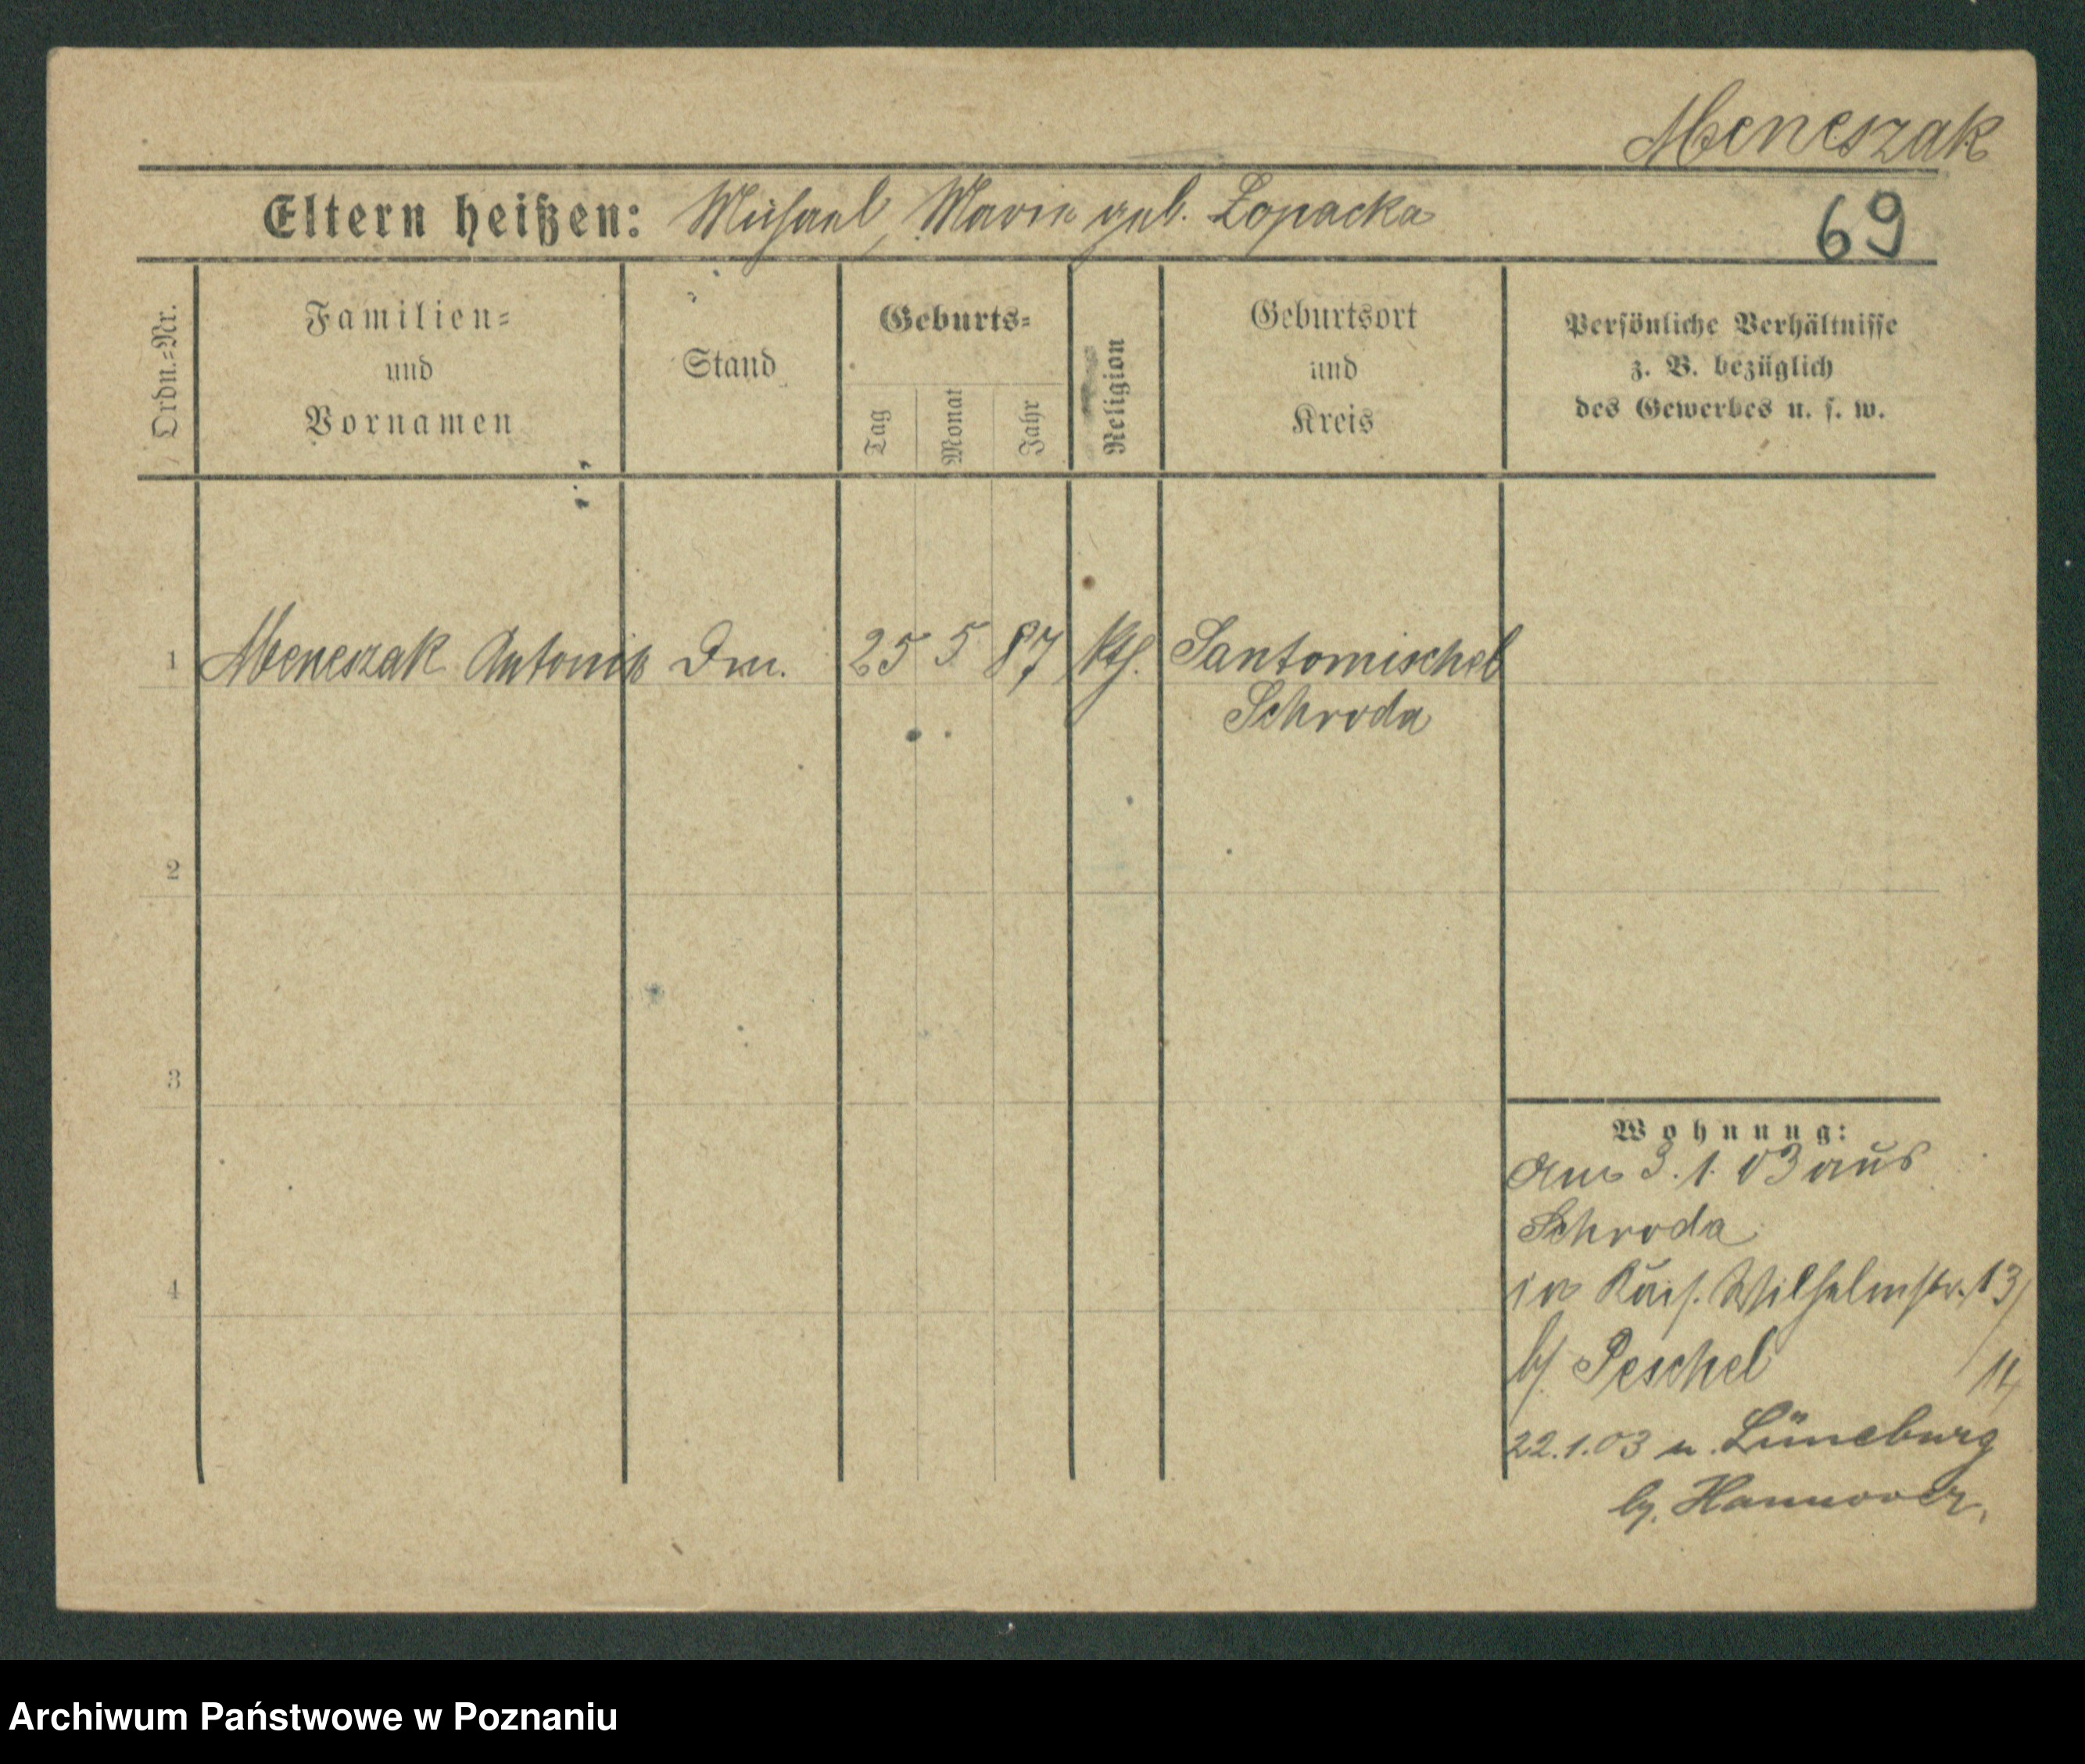 Meneszak
Eltern heißen: Michael, Marie geb. Lopacka
69
Ordn.=Nr.
Familien=
und
Vornamen
Stand
Geburts=
Tag
Monat
Jahr
Religion
Geburtsort
und
Kreis
Persönliche Verhältnisse
z. B. bezüglich
des Gewerbes u. s. w.
1 Meneszak Antonie 25 5 87 kth. Santomischel
Schroda
2
3
4
Wohnung:
Am 3.1.03 aus
Schroda
in Kais. Wilhelmstr. 13/
b/ Peschel 14
22.1.03 n. Lüneburg
Hannover.
Archiwum Państwowe w Poznaniu